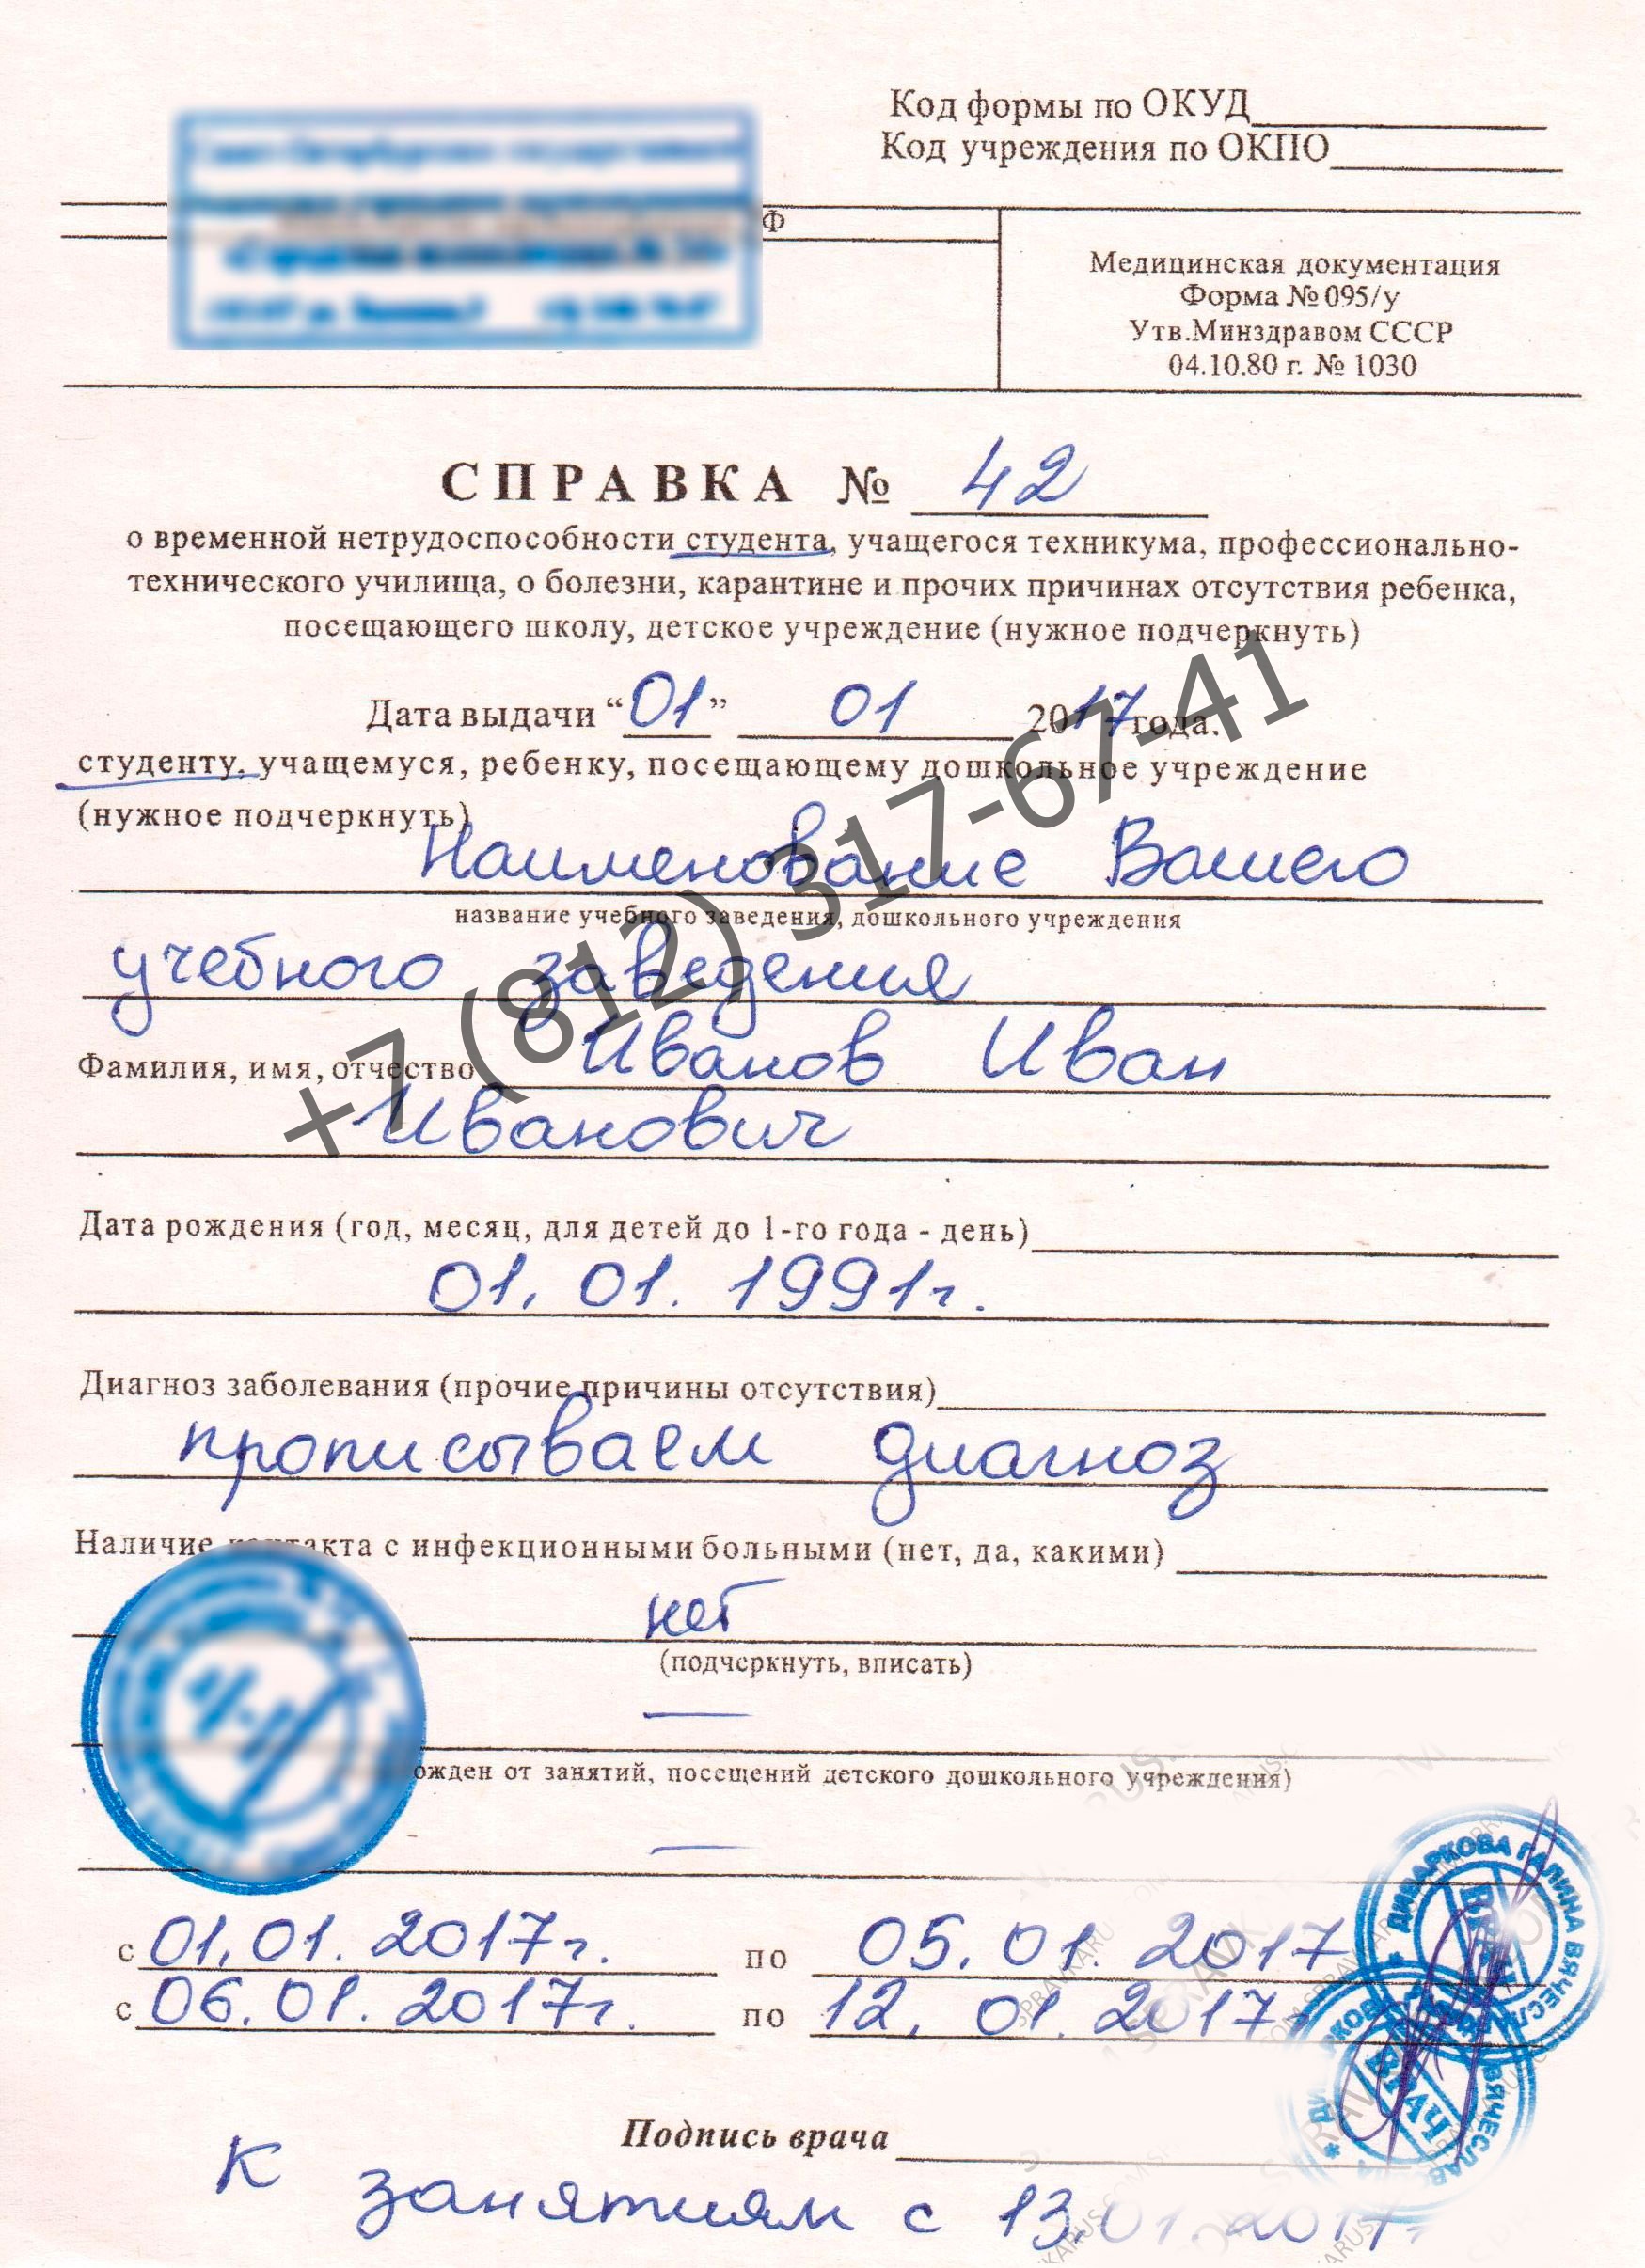 Код формы по ОКУД
Код учреждения по ОКПО
Ф
Медицинская документация
Форма № 095/у
Утв.Минздравом СССР
04.10.80 г. № 1030
СПРАВКА № 42
о временной нетрудоспособности студента, учащегося техникума, профессионально-
технического училища, о болезни, карантине и прочих причинах отсутствия ребенка,
посещающего школу, детское учреждение (нужное подчеркнуть)
Дата выдачи “01” 01 2017 года.
студенту, учащемуся, ребенку, посещающему дошкольное учреждение
(нужное подчеркнуть)
Наименование Вашего
название учебного заведения, дошкольного учреждения
учебного заведения
+7 (812) 317-67-41
Фамилия, имя, отчество Иванов Иван
Иванович
Дата рождения (год, месяц, для детей до 1-го года - день)
01. 01. 1991г.
Диагноз заболевания (прочие причины отсутствия)
прописываем диагноз
Наличие контакта с инфекционными больными (нет, да, какими)
нет
(подчеркнуть, вписать)
—
ожден от занятий, посещений детского дошкольного учреждения)
—
ДИВАРКОВА ГАЛИНА ВЯЧЕСЛАВ
с 01.01.2017г. по 05.01.2017
с 06.01.2017г. по 12.01.2017г
ВРАЧ
Подпись врача
К занятиям с 13.01.2017г.